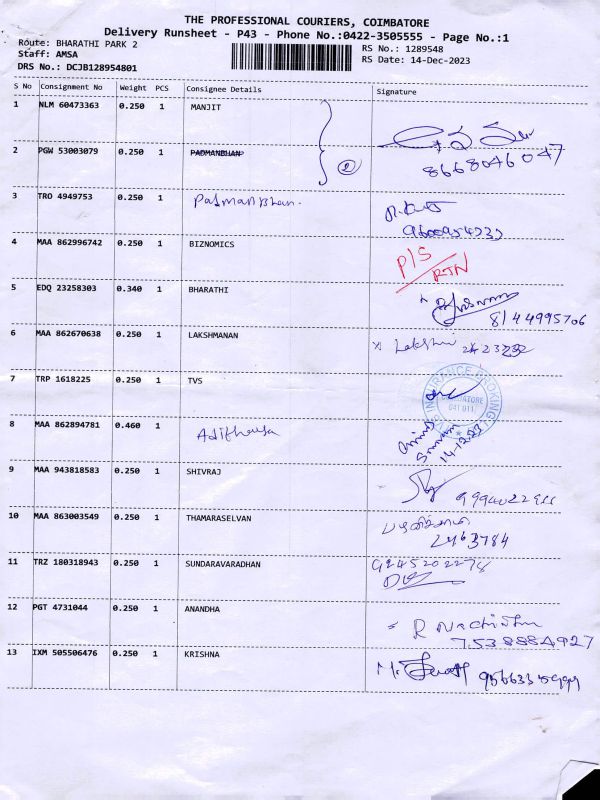 THE PROFESSIONAL COURIERS, COIMBATORE
Delivery Runsheet - P43 - Phone No.:0422-3505555 - Page No.:1
Route: BHARATHI PARK 2
RS No.: 1289548
Staff: AMSA
RS Date: 14-Dec-2023
DRS No.: DCJB128954801
S No Consignment No Weight PCS Consignee Details Signature
1 NLM 60473363 0.250 1 MANJIT
2 PGW 53003079 0.250 1 PADMANBHAN
2
8668046047
3 TRO 4949753 0.250 1 Padmanbhan.
4 MAA 862996742 0.250 1 BIZNOMICS
P/S
RTN
5 EDQ 23258303 0.340 1 BHARATHI
8144995706
6 MAA 862670638 0.250 1 LAKSHMANAN
7 TRP 1618225 0.250 1 TVS
INSURANCE BROKING
641 011
8 MAA 862894781 0.460 1
14-12-23
9 MAA 943818583 0.250 1 SHIVRAJ
10 MAA 863003549 0.250 1 THAMARASELVAN
2463784
11 TRZ 180318943 0.250 1 SUNDARAVARADHAN
9245202278
12 PGT 4731044 0.250 1 ANANDHA
7538884927
13 IXM 505506476 0.250 1 KRISHNA